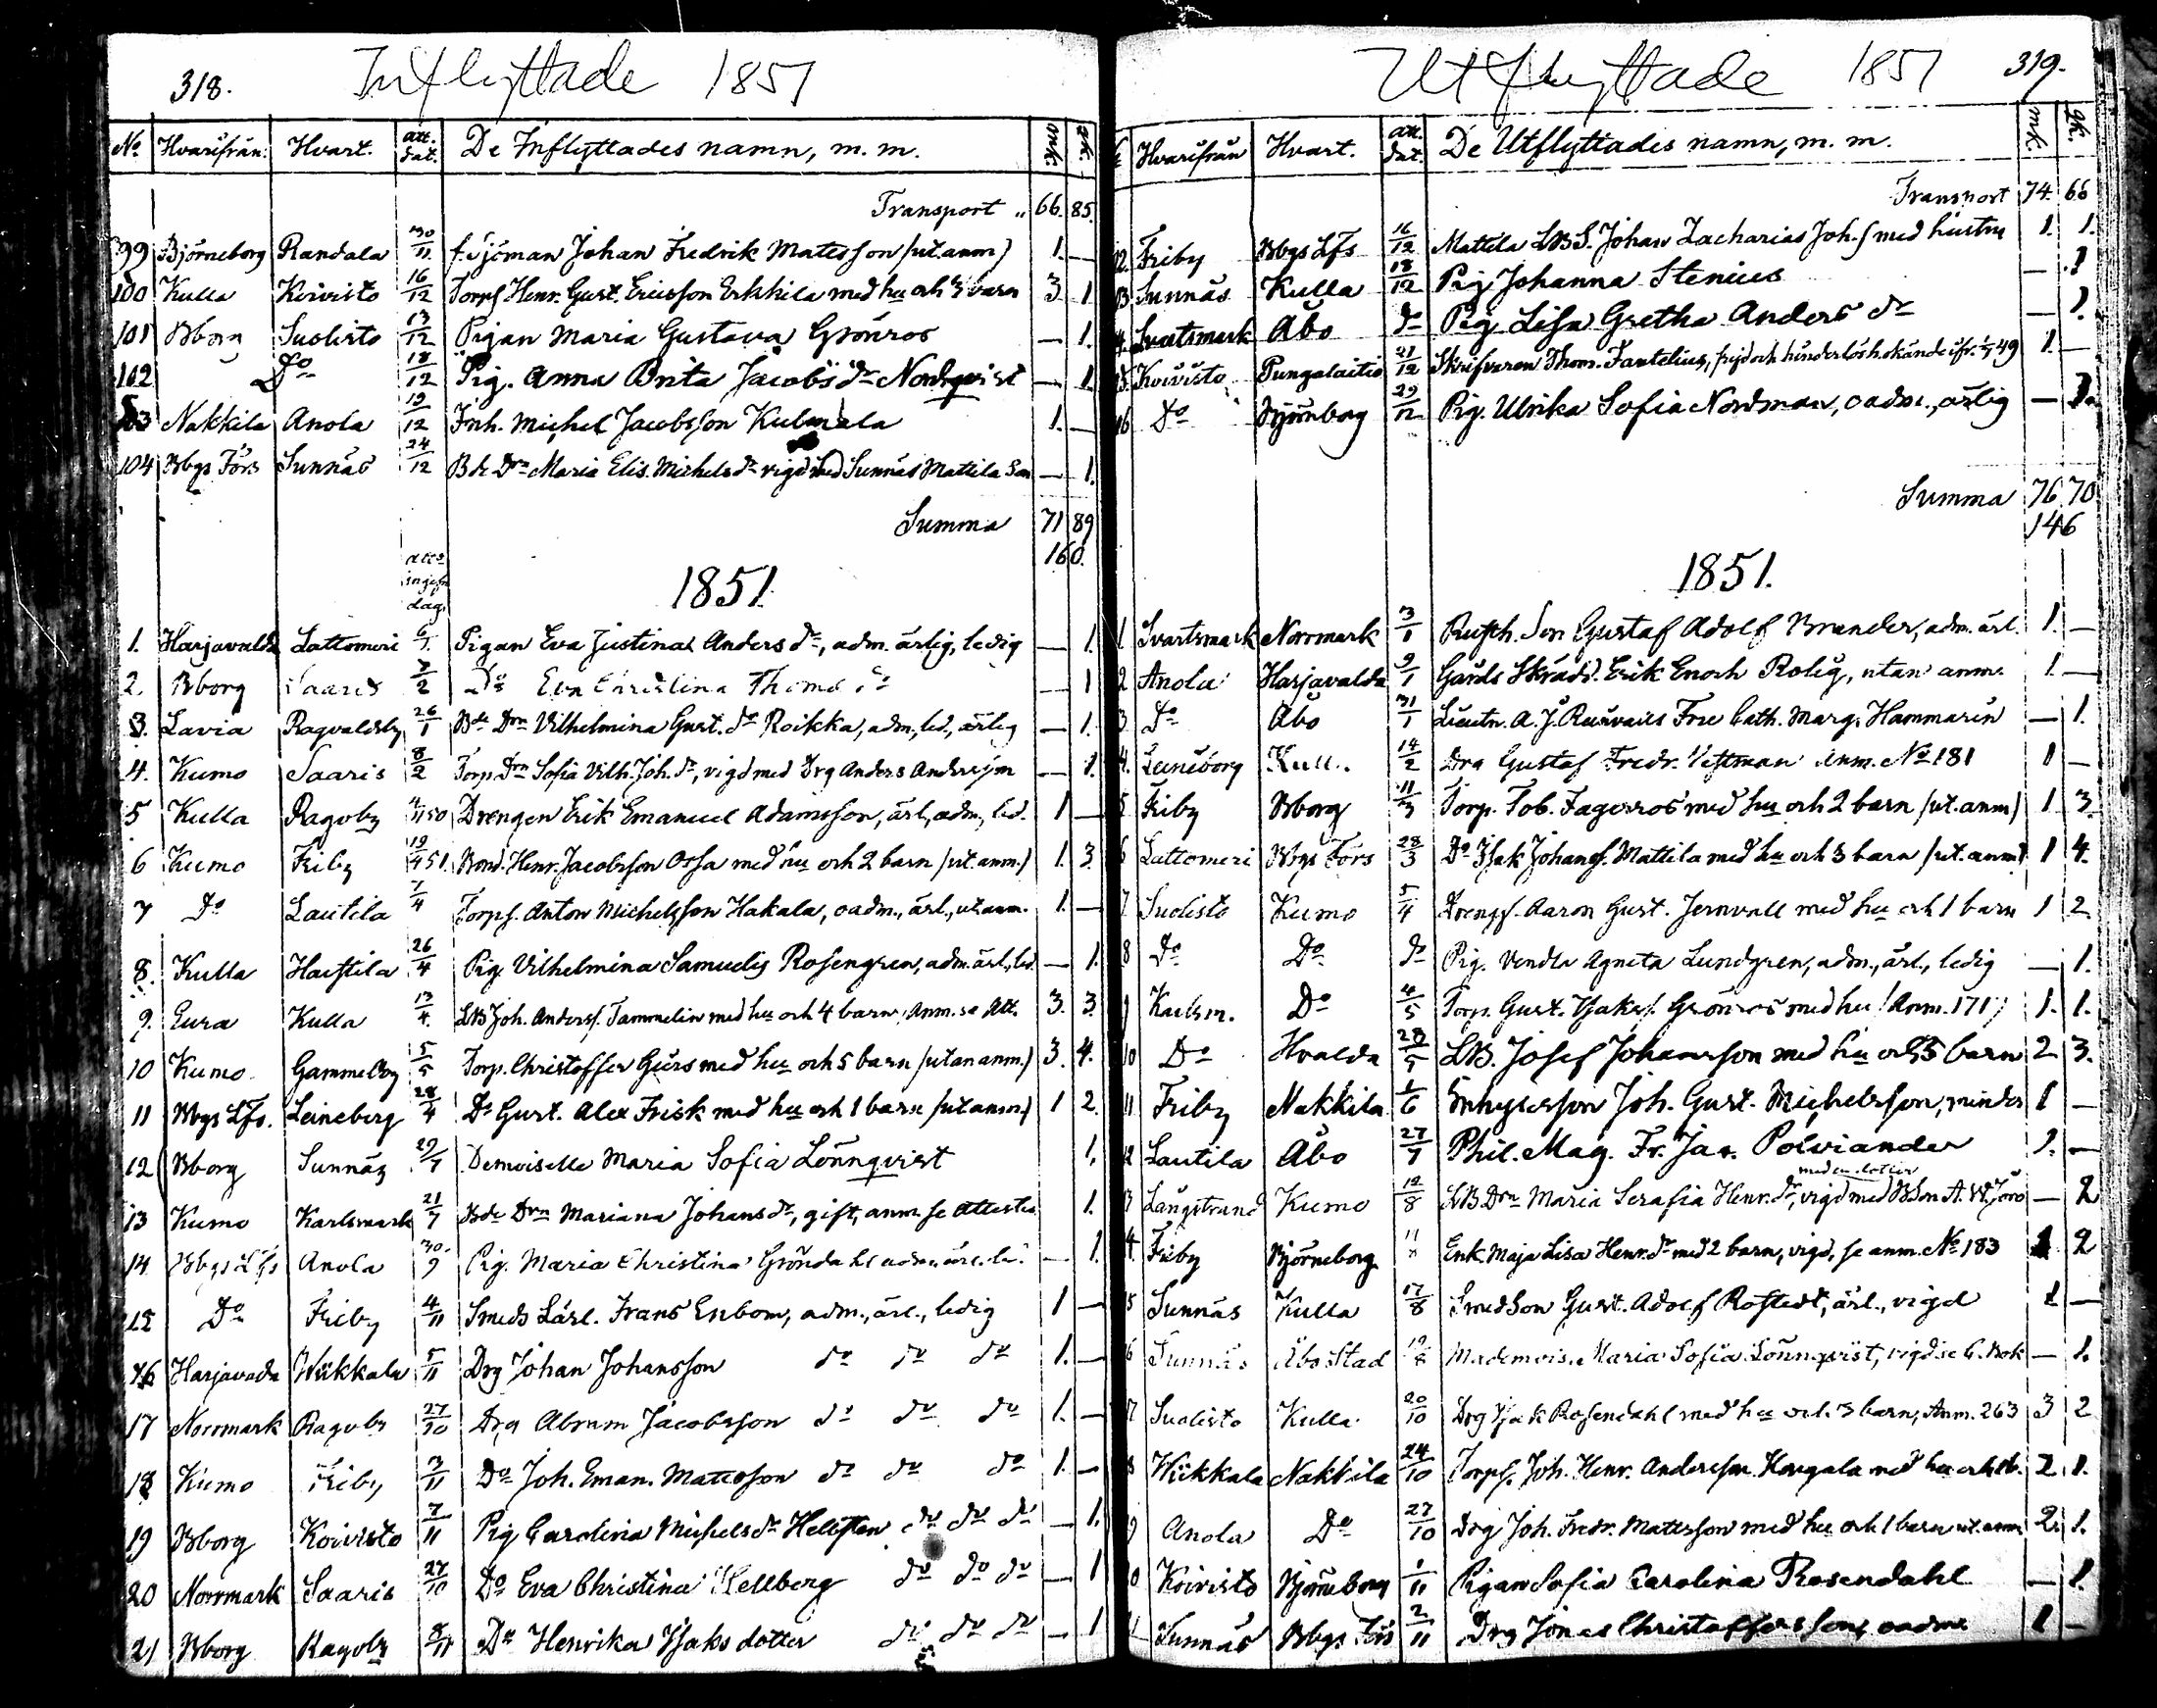 318.
Inflyttade 1851
No Hvarifrån. Hvart. att. dat. De Inflyttades namn, m. m. mk gk
Transport „ 66. 85.
99 Björneborg Randala 30/11 f. Sjöman Johan Fredrik Matts son (ut. anm) 1. —
100 Kulla Koivisto 16/12 Torps Henr. Gust. Ericsson Erkkila med hu och 3 barn 3 1
101 Bborg Suolisto 13/12 Pigan Maria Gustava Grönros — 1.
102 Do 18/12 Pig. Anna Brita Jacobs dr Nordqvist — 1
103 Nakkila Anola 19/12 Inh. Michel Jacobsson Kulmala 1. —
104 Bbgs Förs Sunnäs 24/12 Bde Drn Maria Elis. Michels dr vigd med Sunnäs Mattila Son — 1.
Summa 71 89
160.
1851.
1. Harjavalda Lattomeri 6/1 Pigan Eva Justina Anders dr, adm. ärlig, ledig — 1.
2. Bborg Saaris 7/2 Do Eva Christina Thoms dr — 1
3. Lavia Ragvaldsby 26/1 Bde Drn Vilhelmina Gust. dr Roikka, adm., led., ärlig — 1.
4. Kumo Saaris 8/2 Torp. Drn Sofia Vilh. Joh. dr, vigd med Drg Anders Andersson — 1.
5 Kulla Ragvby 4/11 50 Drengen Erik Emanuel Adamsson, ärl., adm., led. 1 —
6 Kumo Friby 19/4 51. Bond. Henr. Jacobsson Ossa med hu och 2 barn (ut. anm.) 1. 3.
7 Do Lautila 7/4 Torps. Anton Michelsson Hakala, oadm., ärl., ut anm. 1. —
8. Kulla Haistila 26/4 Pig. Vilhelmina Samuels Rosengren, adm. ärl., led. — 1.
9. Eura Kulla 13/4. LB Joh. Anderss. Tammelin med hu och 4 barn, Anm. se Att. 3. 3.
10 Kumo Gammelby 5/5 Torp. Christoffer Gurs med hu och 5 barn (utan anm.) 3. 4.
11 Bbgs Lfs. Leineberg 28/4 Do Gust. Alex Frisk med hu och 1 barn (ut anm.) 1 2.
12 Bborg Sunnäs 29/7 Demoiselle Maria Sofia Lönnqvist 1.
13 Kumo Karlsmark 21/7 Bde Drn Mariana Johans dr, gift, anm. se Attesten 1.
14 Bbgs Lfs Anola 30/9 Pig. Maria Christina Gröndahl adm. ärl. led. — 1.
15 Do Friby 4/11 Smeds Lärl. Frans Enbom, adm., ärl., ledig 1 —
16 Harjavalda Wiikkala 5/11 Drg Johan Johansson do do do 1. —
17 Norrmark Ragvby 27/10 Drg Abram Jacobsson do do do 1. —
18 Kumo Friby 3/11 Do Joh. Eman. Mattsson do do do 1. —
19 Bborg Koivisto 7/11 Pig Carolina Michels dr Helisten do do do — 1.
20 Norrmark Saaris 27/10 Do Eva Christina Hellberg do do do — 1
21 Bborg Ragvby 8/11 Do Henrika Isaks dotter do do do — 1
Utflyttade 1851 319.
Hvarifrån Hvart. att. dat. De Utflyttades namn, m. m. mk. gk.
Transport 74. 66
12. Friby Bbgs Lfs 16/12 Mattila LBS. Johan Zacharias Joh. s med hustru 1. 1.
13 Sunnäs Kulla 18/12 Pig Johanna Stenius — 1
14 Svartsmark Åbo do Pig Lisa Gretha Anders dr — 1.
15. Koivisto Pungalaitio 21/12 Skrifvaren Thom. Fantelius, 1. —
16 Do Björnborg 29/12 Pig. Ulrika Sofia Nordman, oadm., ärlig — 1.
Summa 76 70
146
1851.
1 Svartsmark Norrmark 3/1 Rusth. Son Gustaf Adolf Brander, adm. ärl. 1. —
2 Anola Harjavalda 9/1 Gårds Skrädd. Erik Enoch Rolig, utan anm. 1. —
3 Do Åbo 31/1 Lieutn. A. J. Fru Cath. Marg. Hammarin — 1.
4. Leineborg Kull. 14/2 Drg Gustaf Fredr. Vestman Anm. No 181 1 —
5 Friby Bborg 11/3 Torp. Tob. Fagerros med hu och 2 barn (ut. anm) 1 3.
6 Lattomeri Bbgs Förs 28/3 Do Isak Johans. Mattila med hu och 3 barn (ut. anm) 1 4.
7 Suolisto Kumo 5/4 Drengs. Aaron Gust. Jernvall med hu och 1 barn 1 2.
8 Do Do do Pig. Vendla Agneta Lundgren, adm., ärl., ledig — 1.
9 Karlsm. Do 4/5 Torp. Gust. Isaks. Grönros med hu (Anm. 171) 1. 1.
10 Do Hvalda 28/5 LB. Josef Johansson med hu och 5 barn 2 3.
11 Friby Nakkila 1/6 Inhysesson Joh. Gust. Michelsson, minder 1 —
12 Lautila Åbo 27/7 Phil. Mag. Fr. Jac. Polviander 1. —
med en dotter
13 Långstrand Kumo 12/8 LB Drn Maria Serafia Henr. dr, vigd med BSon A. W. — 2
14 Friby Björneborg 11/8 Enk. Maja Lisa Henr. dr med 2 barn, vigd, se anm. No 183 1 2
15 Sunnäs Kulla 17/8 Smed Son Gust. Adolf Rostedt, ärl., vigd 1 —
16 Sunnäs Åbo Stad 19/8 Mademois. Maria Sofia Lönnqvist, vigd se C. Bok — 1.
17 Suolisto Kulla 20/10 Drg Isak Rosendahl med hu och 3 barn, Anm. 263 3 2
18 Wiikkala Nakkila 24/10 Torps. Joh. Henr. Andersson Kongala med hu och 1 b. 2. 1.
19 Anola Do 27/10 Drg Joh. Fredr. Mattsson med hu och 1 barn ut. anm 2. 1.
20 Koivisto Björneborg 1/11 Pigan Sofia Carolina Rosendahl — 1.
21 Sunnäs Bbgs Förs 2/11 Drg Jonas Christoffersson, oadm 1 —